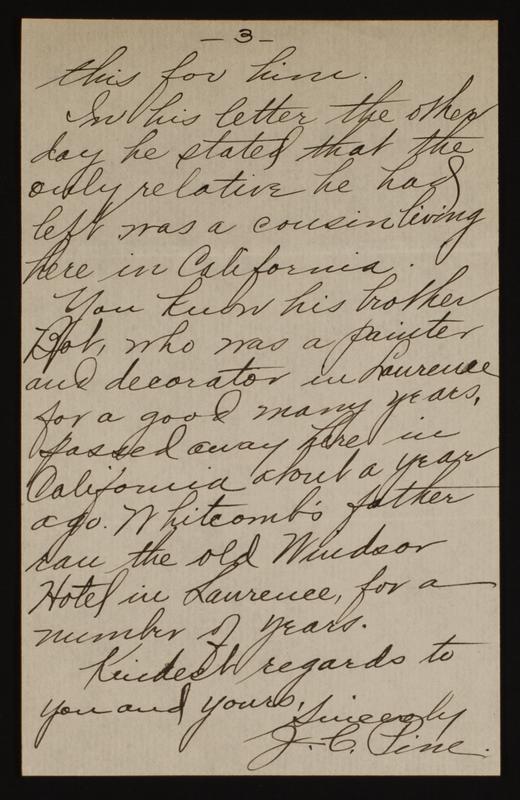 - 3 -
this for him.
In his letter the other
day he stated that the
only relative he had
left was a cousin living
here in California.
You know his brother
Bob, who was a painter
and decorator in Laurence
for a good many years,
passed away here in
California about a year
ago. Whitcomb's father
ran the old Windsor
Hotel in Laurence, for a
number of years.
Kindest regards to
you and yours,
Sincerely
J. C. Pine.